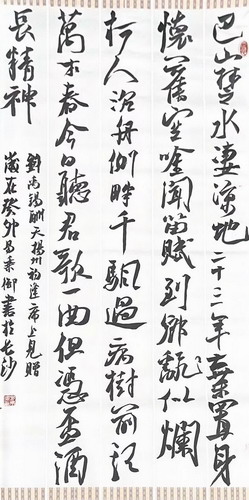 巴山楚水淒涼地二十三年棄置身
懷舊空吟聞笛賦到鄉翻似爛
柯人沉舟側畔千帆過病樹前頭
萬木春今日聽君歌一曲但憑盃酒
長精神
劉禹錫酬天揚州初逢席上見贈
歲在癸卯易秉書於長沙